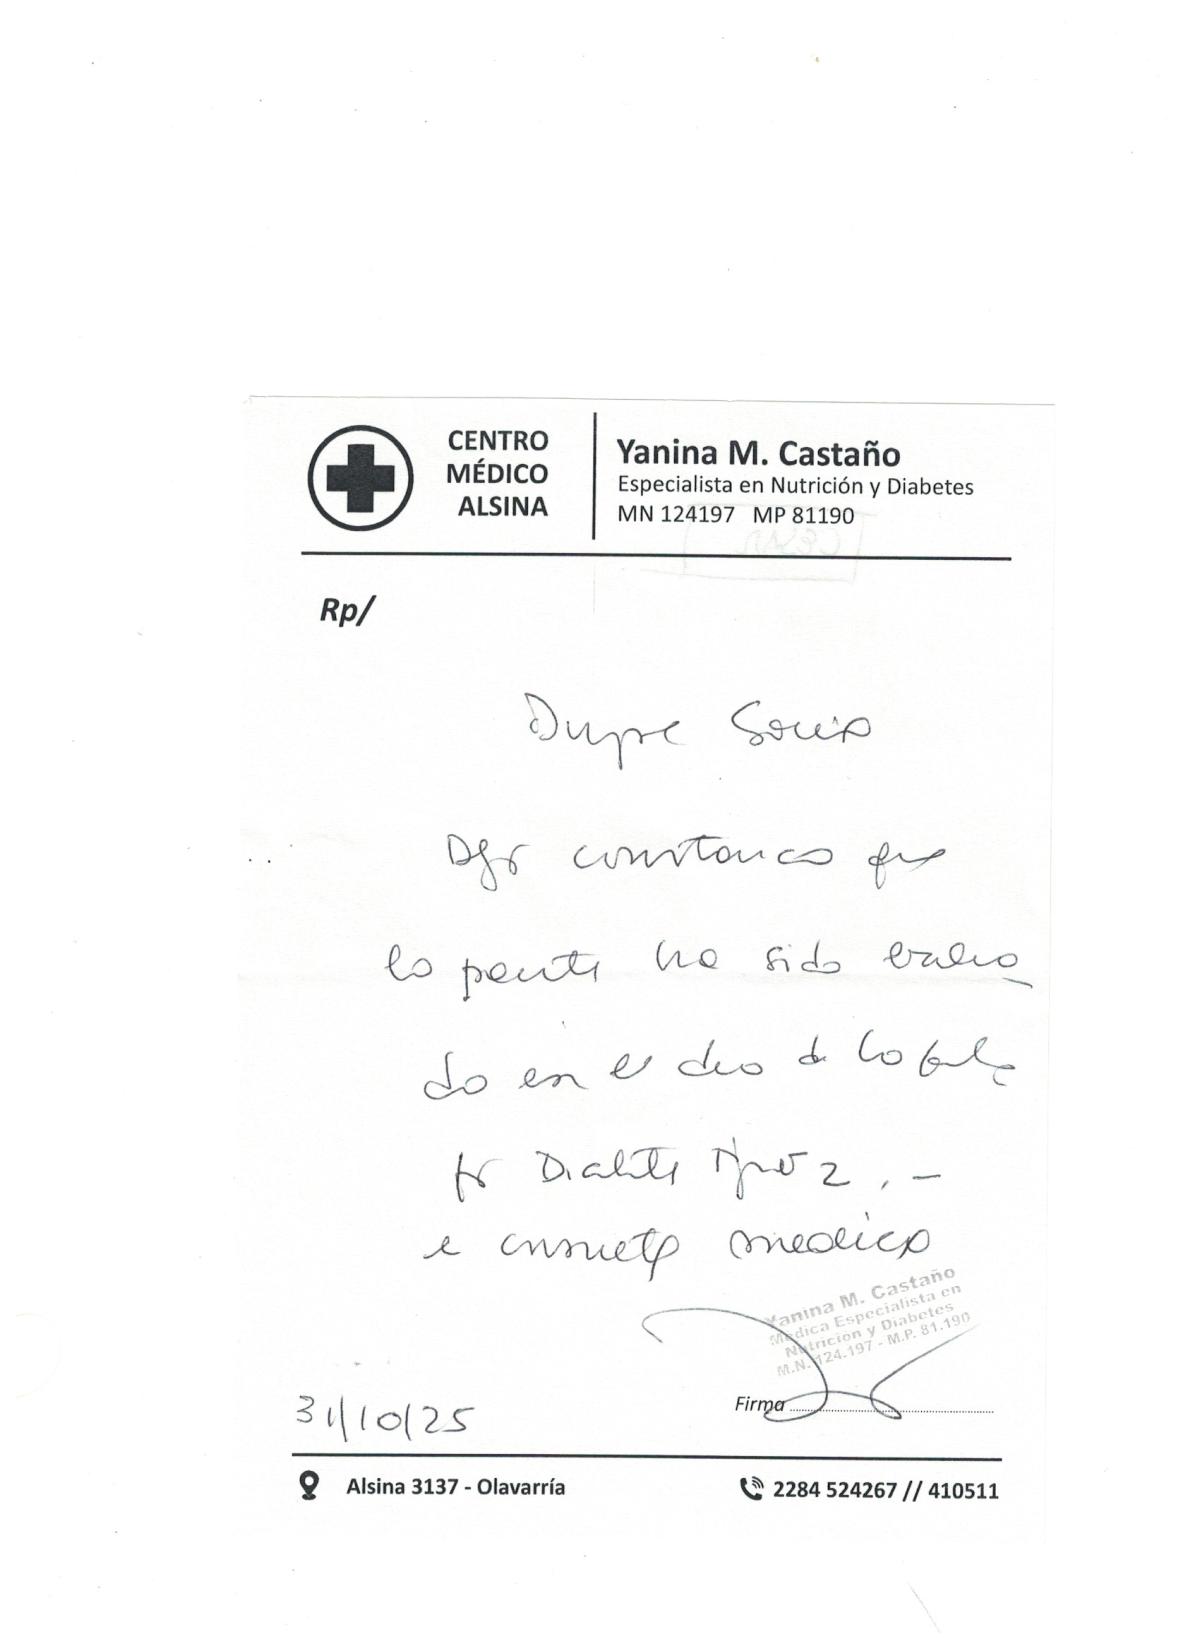 CENTRO
MÉDICO
ALSINA
Yanina M. Castaño
Especialista en Nutrición y Diabetes
MN 124197 MP 81190
Rp/
Dejo constancia que
la paciente ha sido evalua
do en el dia de la fecha
por Diabetes tipo 2 . -
medico
Yanina M. Castaño
Médica Especialista en
Nutrición y Diabetes
M.N. 124.197 - M.P. 81.190
Firma
31/10/25
Alsina 3137 - Olavarría
2284 524267 // 410511